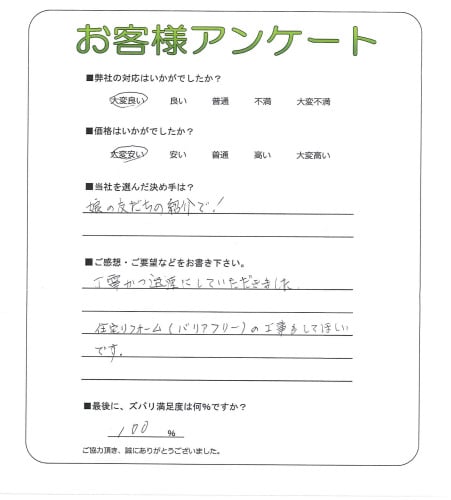 お客様アンケート
■弊社の対応はいかがでしたか？
大変良い 良い 普通 不満 大変不満
■価格はいかがでしたか？
大変安い 安い 普通 高い 大変高い
■当社を選んだ決め手は？
娘の友だちの紹介で！
■ご感想・ご要望などをお書き下さい。
丁寧かつ迅速にしていただきました
住宅リフォーム（バリアフリー）の工事もしてほしい
です。
■最後に、ズバリ満足度は何％ですか？
100 ％
ご協力頂き、誠にありがとうございました。